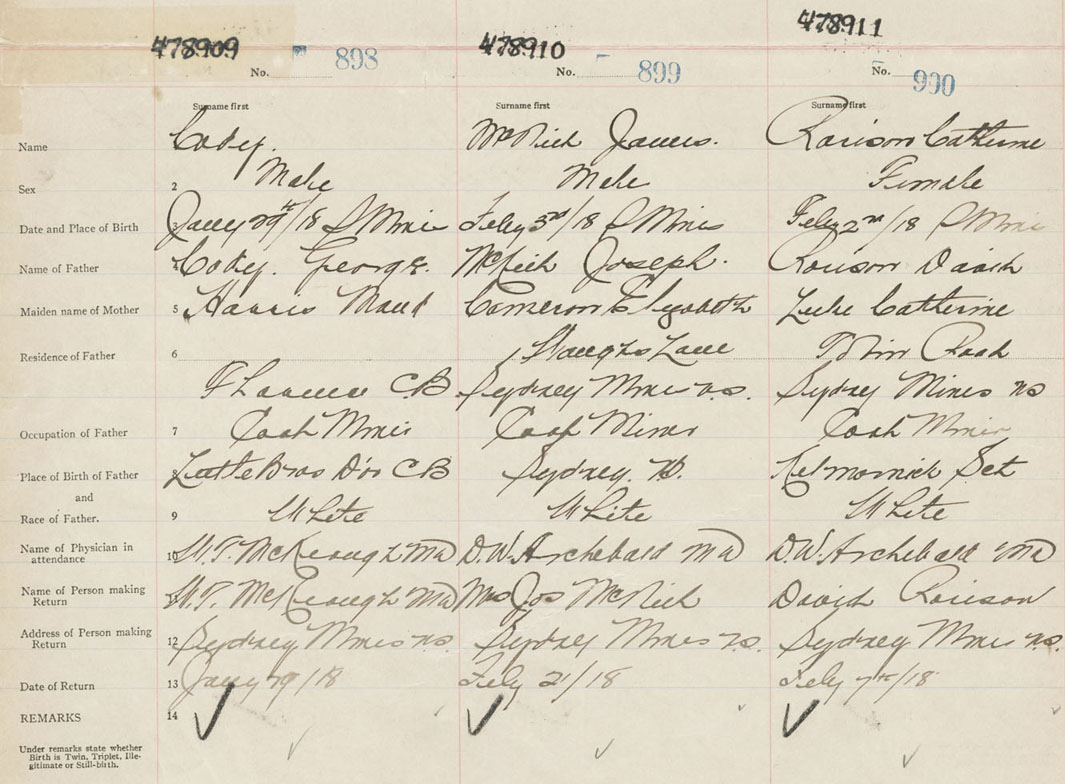 478909 478910 478911
No. 898 No. 899 No. 900
Surname first Surname first Surname first
Name Cody. McNich James. Catherine
Sex 2 Male Male Female
Date and Place of Birth 3 Jany 29th/18 S Mines Feby 3rd/18 S Mines Feby 2nd/18 S Mines
Name of Father 4 Cody. George. Joseph. David
Maiden name of Mother 5 Harris Maud Cameron Elizabeth Luke Catherine
Residence of Father 6 Lane Road
Florence CB Sydney Mines N.S. Sydney Mines NS
Occupation of Father 7 Coal Miner Coal Miner Coal Miner
Place of Birth of Father 8 Little Bras Dor CB Sydney. Sct
and
Race of Father. 9 White White White
Name of Physician in attendance 10 McKeough MD D.W. Archebald MD D.W. Archebald MD
Name of Person making Return McKeough MD Mrs Jos McNich David
Address of Person making Return 12 Sydney Mines N.S. Sydney Mines N.S. Sydney Mines N.S.
Date of Return 13 Jany 29/18 Feby 21/18 Feby 7th/18
REMARKS 14
Under remarks state whether
Birth is Twin, Triplet, Ille-
gitimate or Still-birth.